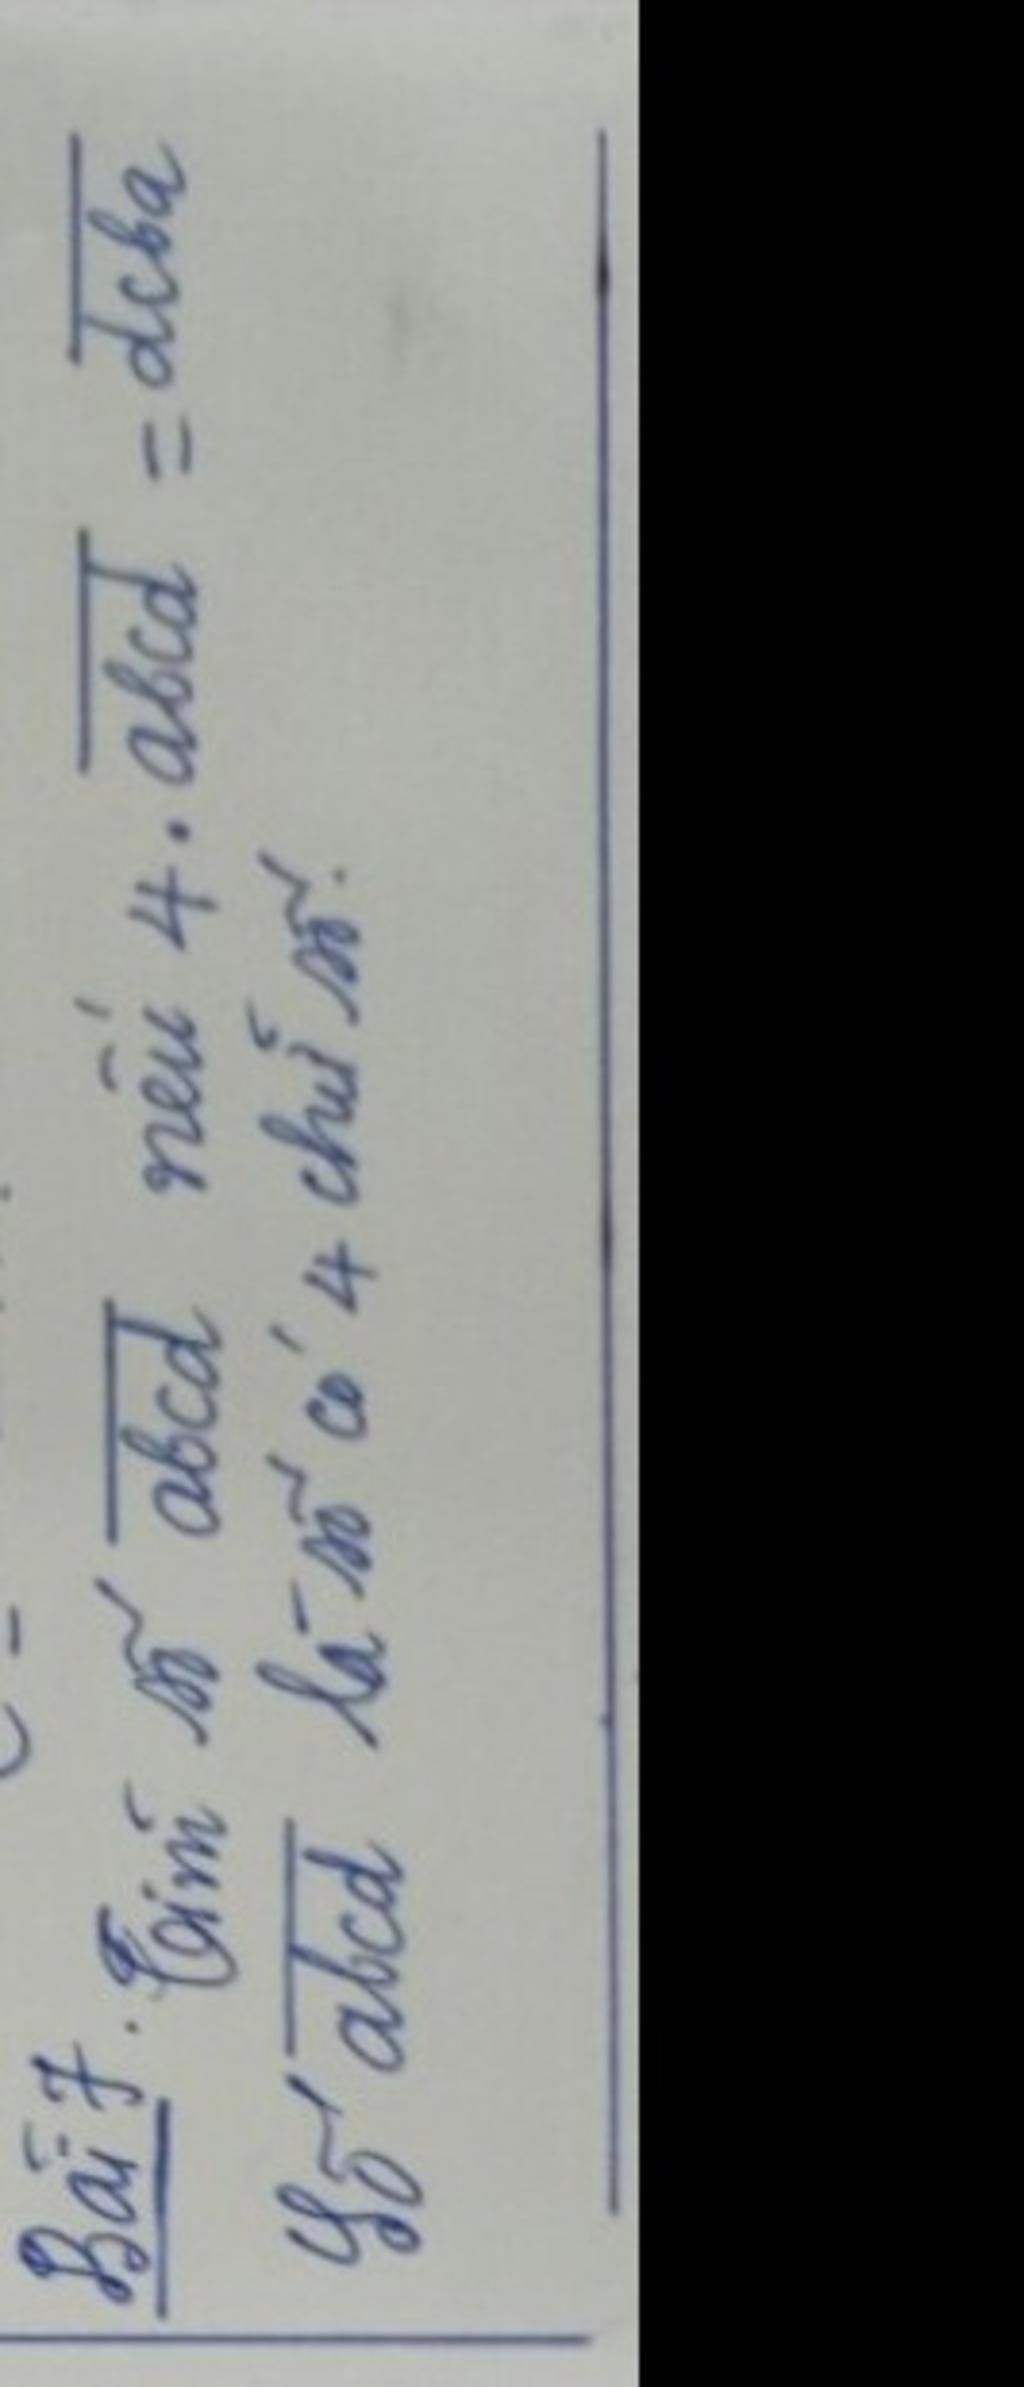 Bài 7. Tìm số abcd nếu 4. abcd = dcba
Số abcd là số có 4 chữ số.